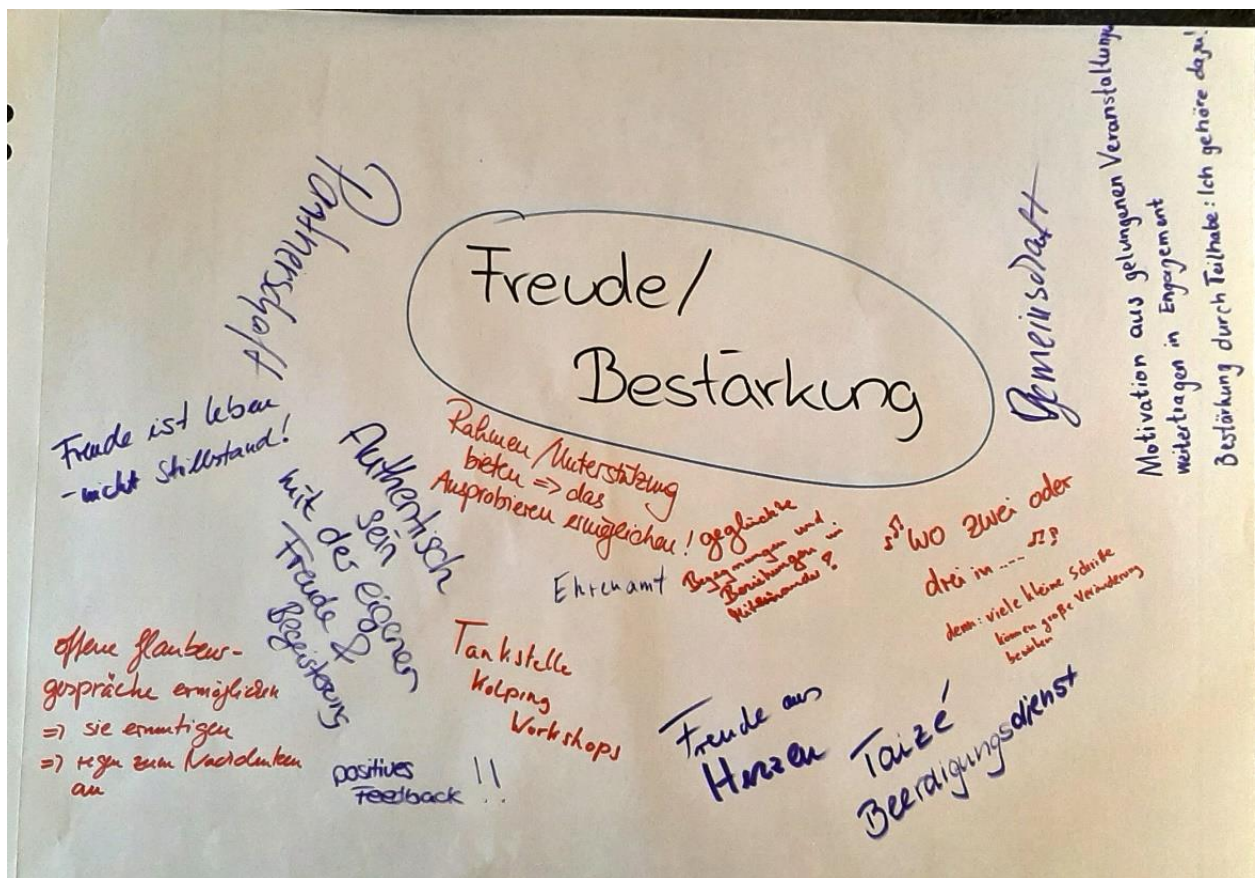 Freude/
Bestärkung
Partnerschaft
Gemeinschaft
Motivation aus gelungenen Veranstaltungen
weitertragen in Engagement
Bestärkung durch Teilhabe: Ich gehöre dazu!
Freude ist leben
- nicht Stillstand!
Authentisch
sein
mit der eigenen
Freude &
Begeisterung
Rahmen/Unterstützung
bieten => das
Ausprobieren ermöglichen!
geglückte
Begegnungen und
Beziehungen im
Miteinander?
Ehrenamt
♫ wo zwei oder
drei in .... ♫?
denn: viele kleine Schritte
können große Veränderung
bewirken
offene Glaubens-
gespräche ermöglichen
=> sie ermutigen
=> regen zum Nachdenken
an
Tankstelle
Kolping
Workshops
positives
Feedback !!
Freude aus
Herzen
Taizé
Beerdigungsdienst